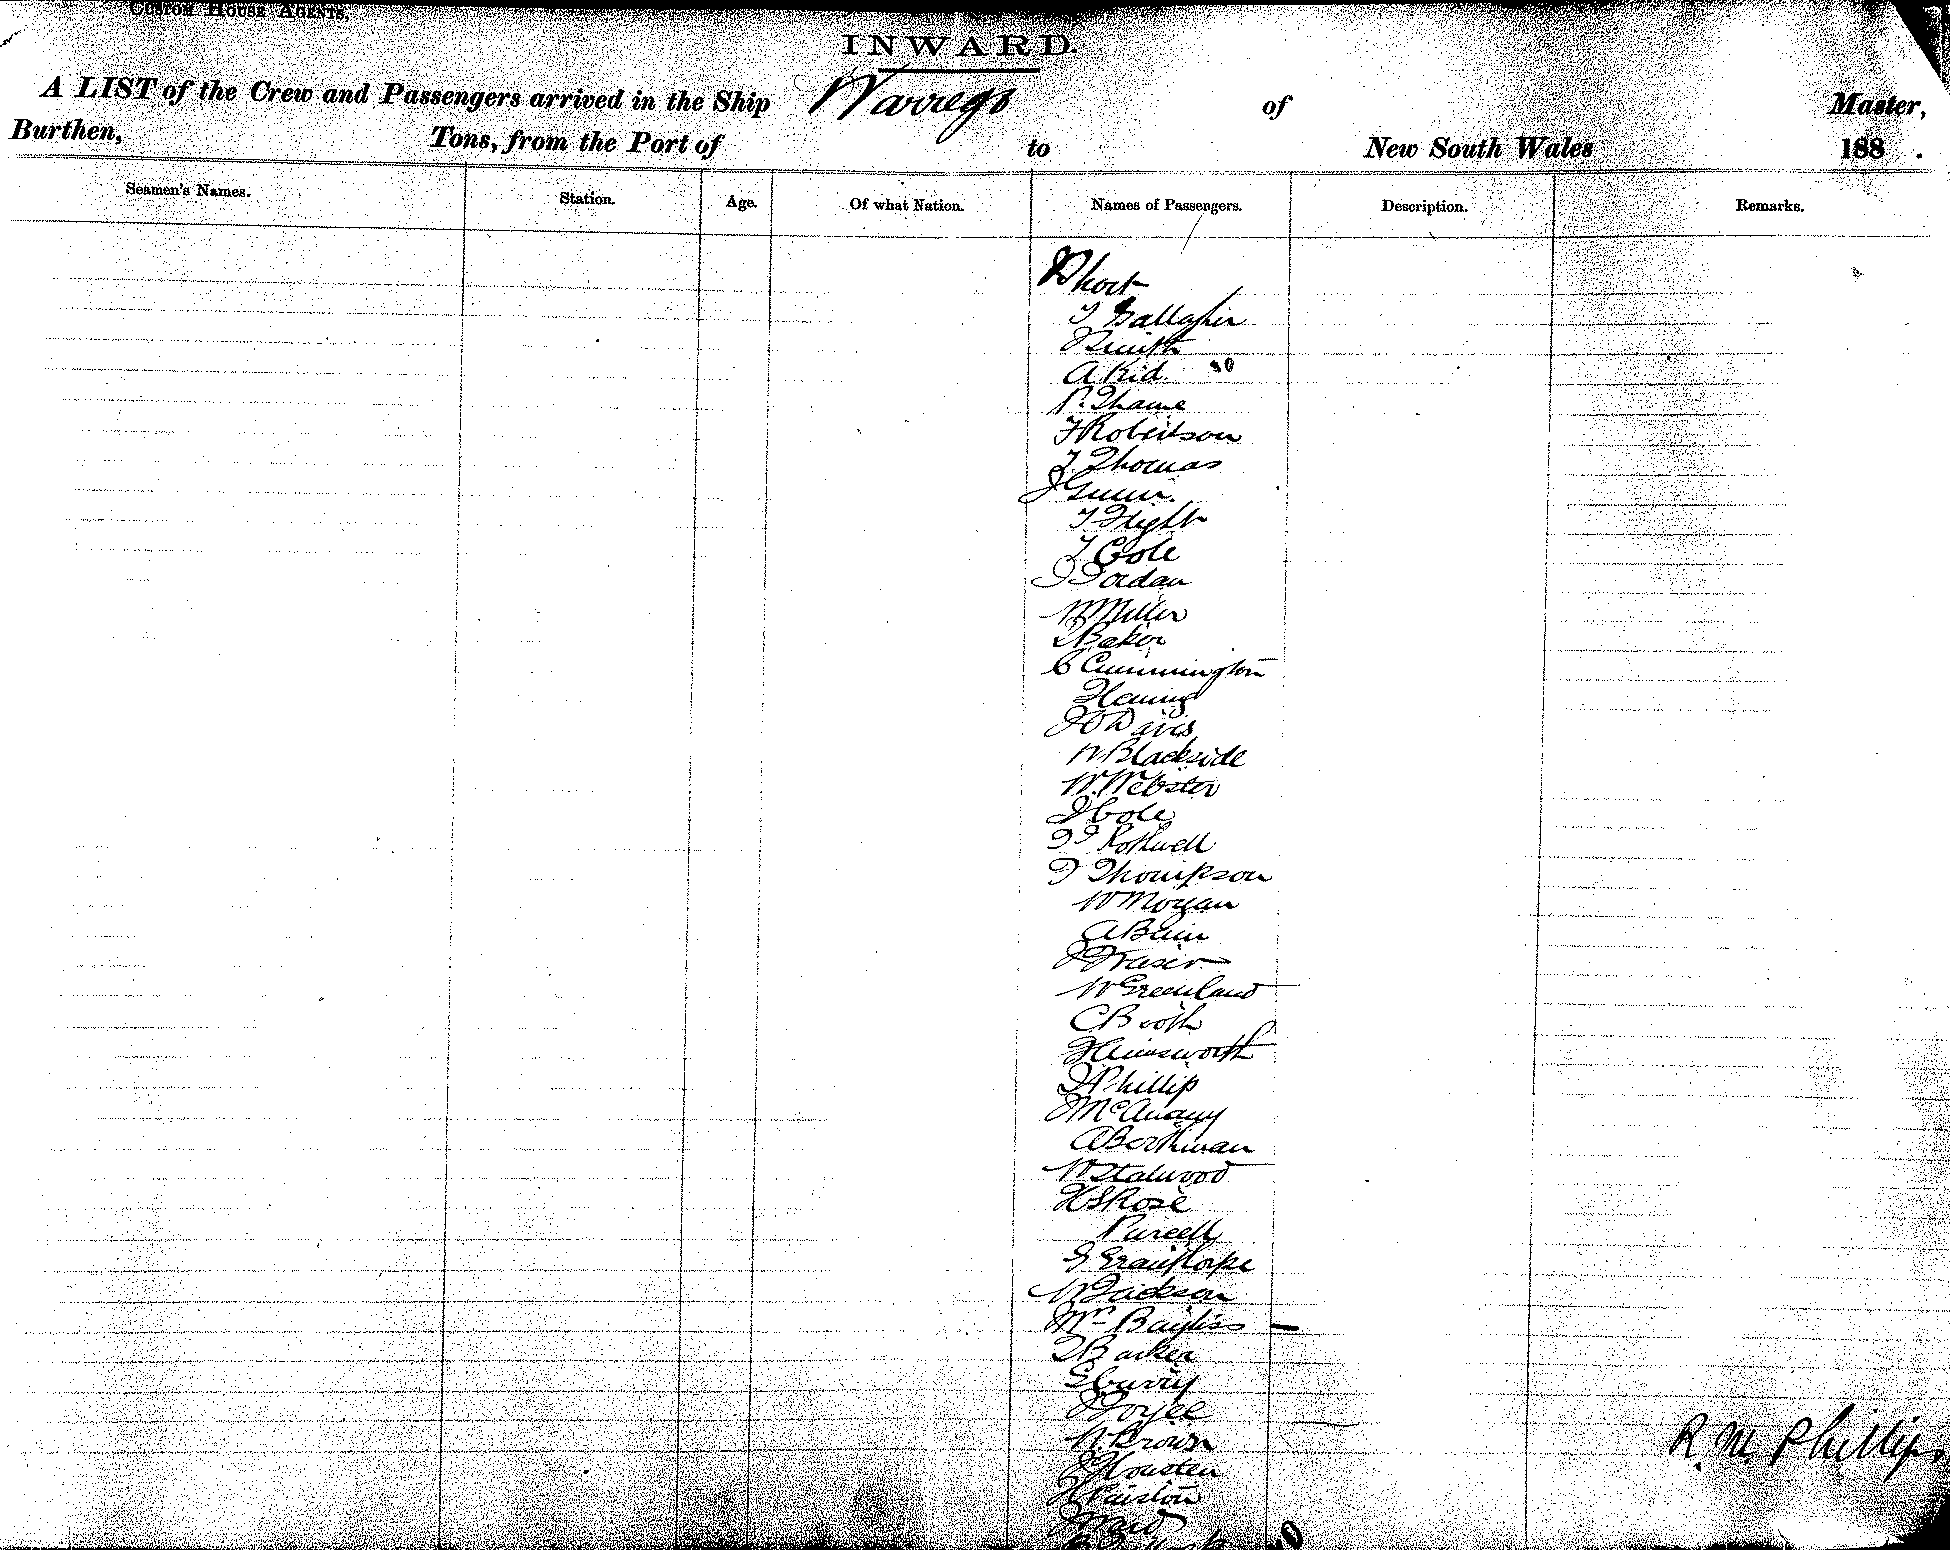 CUSTOM HOUSE AGENTS.
INWARD.
A LIST of the Crew and Passengers arrived in the Ship Warrego of Master,
Burthen, Tons, from the Port of to New South Wales 188 .
Seamen's Names. Station. Age. Of what Nation. Names of Passengers. Description. Remarks.
Short
T Gallagher
Smith
A Kid
P. Thame
F Robertson
T. Thomas
J Gunn.
T Flight
T Cole
J Jordan
W Miller
J Baker
C Cummington
Fleming
J W Davis
W Blackside
W. Webster
J Cole
J J Rothwell
J Thompson
W Morgan
A Bain
J Fraser
W Greenland
C Booth
Hemsworth
J Phillip
J McAvany
A Boothman
W Stalwood
H S Rose
Purcell
J Grainthorpe
W Jackson
Mr Bayliss
J Barker
E Curry
W. Brown
J Houston
R. M. Phillips